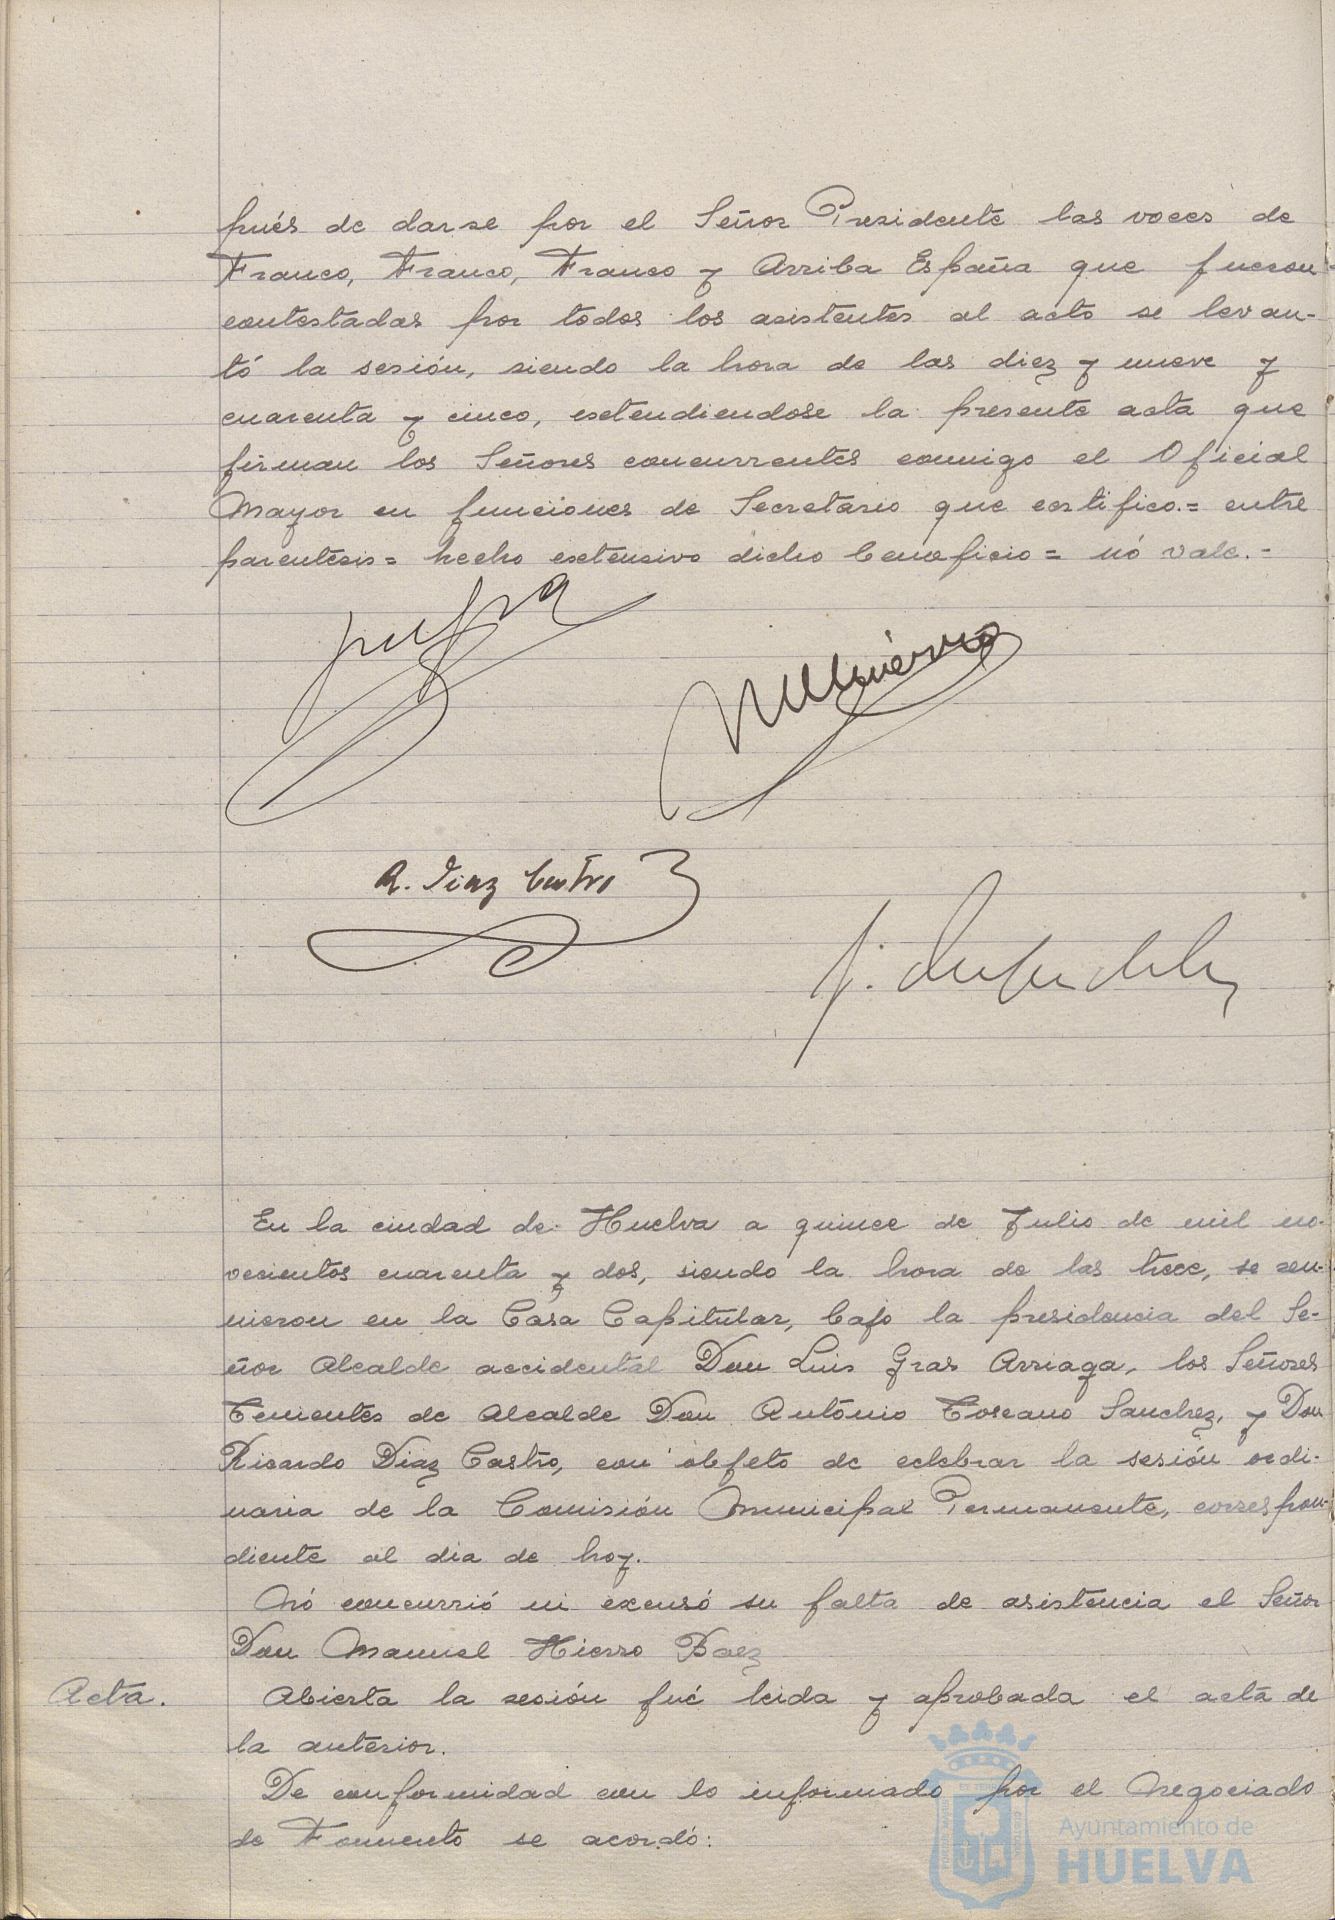 pués de darse por el Señor Presidente las voces de
Franco, Franco, Franco y Arriba España que fueron
contestadas por todos los asistentes al acto se levan-
tó la sesión, siendo la hora de las diez y nueve y
cuarenta y cinco, extendiendose la presente acta que
firman los Señores concurrentes conmigo el Oficial
Mayor en funciones de Secretario que certifico.= entre
parentesis= hecho extensivo dicho beneficio= nó vale.-
R. Diaz Castro
En la ciudad de Huelva a quince de Julio de mil no-
vecientos cuarenta y dos, siendo la hora de las trece, se reu-
nieron en la Casa Capitular, bajo la presidencia del Se-
ñor Alcalde accidental Don Luis Gras Arriaga, los Señores
Tenientes de Alcalde Don Antonio Toscano Sanchez, y Don
Ricardo Diaz Castro, con objeto de celebrar la sesión ordi-
naria de la Comisión Municipal Permanente, correspon-
diente al dia de hoy.
Nó concurrió ni excusó su falta de asistencia el Señor
Don Manuel Hierro Baez
Acta.
Abierta la sesión fué leida y aprobada el acta de
la anterior.
De conformidad con lo informado por el Negociado
de Fomento se acordó:
Ayuntamiento de
HUELVA